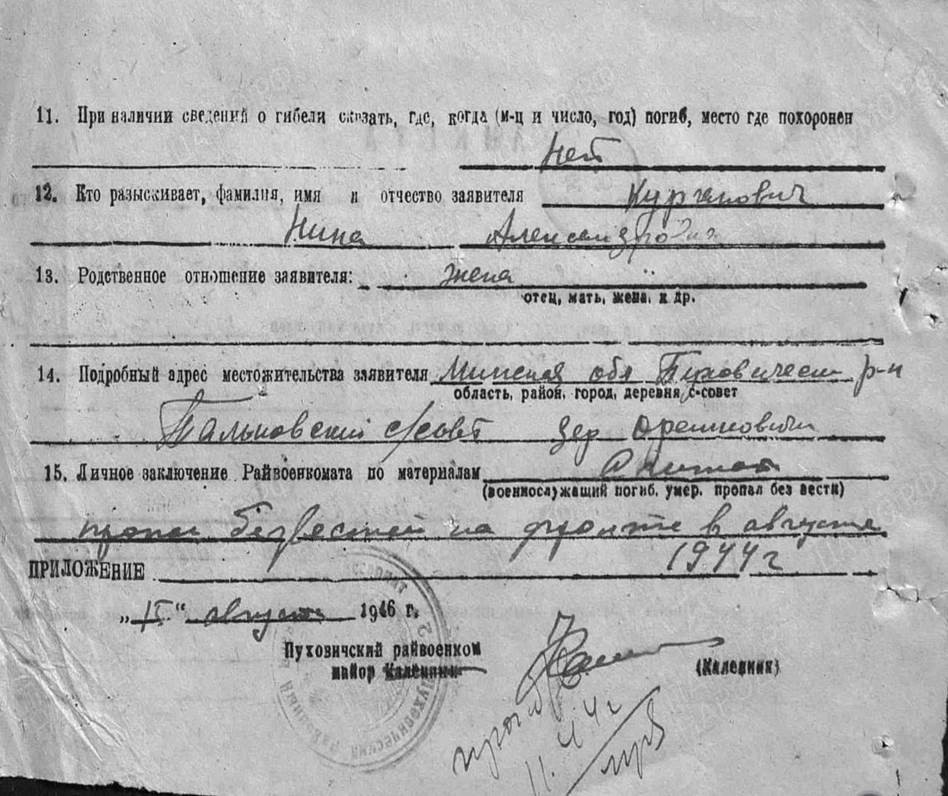 11. При наличии сведений о гибели сказать, где, когда (м-ц и число, год) погиб, место где похоронен
нет
12. Кто разыскивает, фамилия, имя и отчество заявителя Курганович
Нина Александровна
13. Родственное отношение заявителя: жена
отец, мать, жена. и др.
14. Подробный адрес местожительства заявителя Минская обл Пуховическ р-н
область, район, город, деревня, с-совет
Тальковский с/совет дер Орешковичи
15. Личное заключение Райвоенкомата по материалам считат
(военнослужащий погиб, умер, пропал без вести)
пропал без вестей на фронте в августе
1944 г
ПРИЛОЖЕНИЕ
августа 1946 г.
Пуховичский райвоенком
майор Калепник (Калепник)